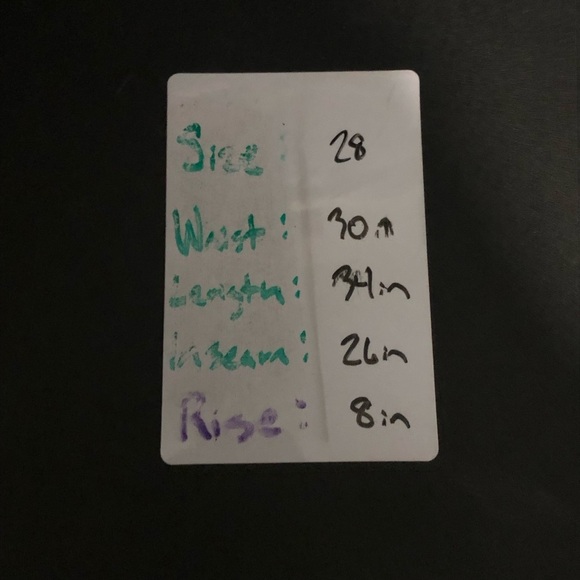 Size: 28
Waist: 30in
Length: 34in
Inseam: 26in
Rise: 8in